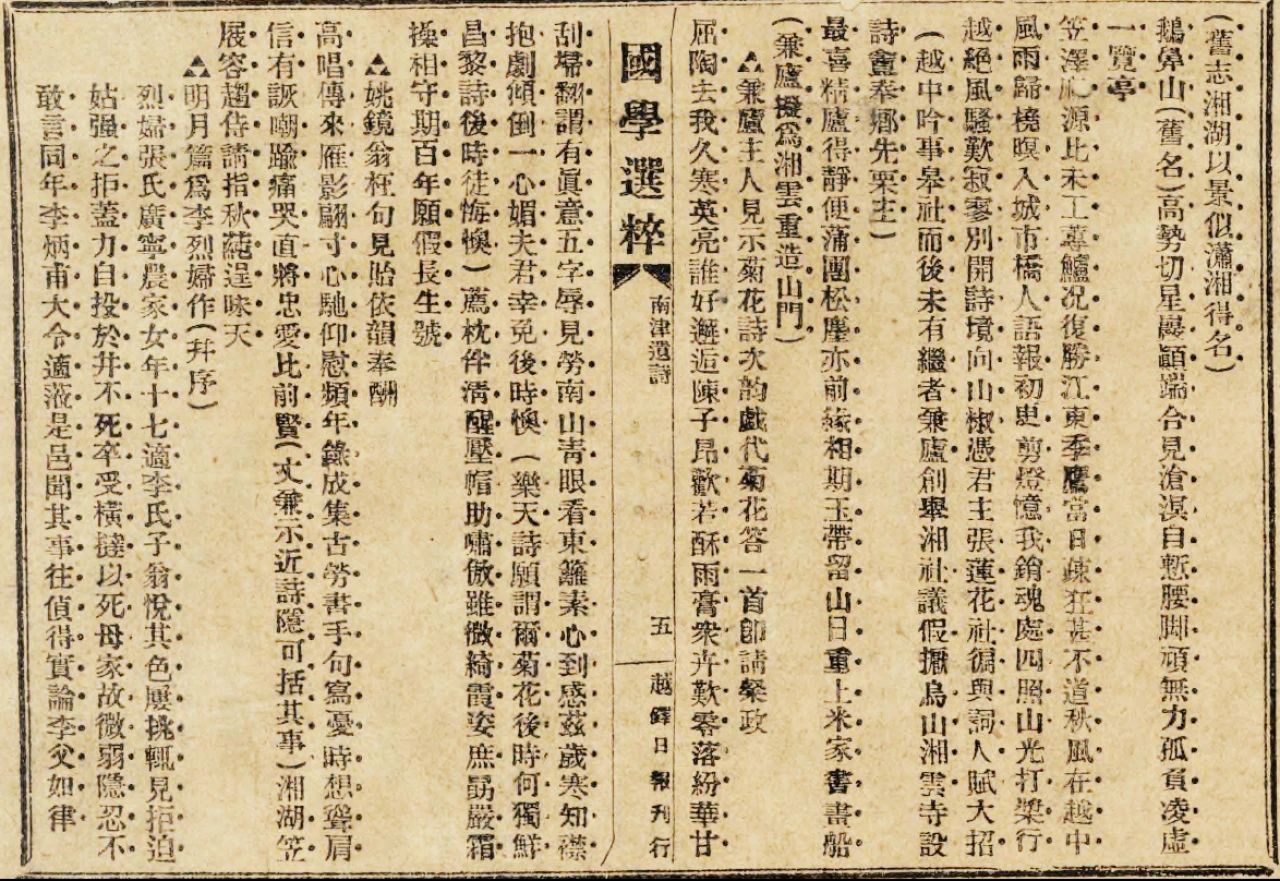 (舊志湘湖以景似瀟湘得名)
鵝鼻山(舊名)高勢切星巖顧端合見滄溟自慙腰脚頑無力孤負凌虛
一覽亭
笠澤 源比未工蓴鱸况復勝江東季鷹當日疎狂甚不道秋風在越中
風雨歸橈暝入城市橋人語報初更剪燈憶我銷魂處四照山光打槳行
越絕風騷歎寂寥別開詩境向山椒憑君主張蓮花社徧與詞人賦大招
(越中吟事皋社而後未有繼者兼廬創舉湘社議假 烏山湘雲寺設
詩龕奉鄉先栗主)
最喜精廬得靜便蒲團松麈亦前緣相期玉帶留山日重上米家書畫船
(兼廬擬爲湘雲重造山門)
▲兼廬主人見示菊花詩次韵戲代菊花答一首卽請粲政
屈陶去我久寒英亮誰好邂逅陳子昂歡若酥雨膏衆卉歎零落紛華甘
刮埽翻謂有眞意五字辱見勞南山靑眼看東籬素心到感茲歲寒知襟
抱劇傾倒一心媚夫君幸免後時懊(樂天詩願謂爾菊花後時何獨鮮
昌黎詩後時徒悔懊)薦枕伴淸醒壓帽助嘯傲雖微綺霞姿庶勗嚴霜
操相守期百年願假長生號
▲姚鏡翁枉句見貽依韻奉酬
高唱傳來雁影翩寸心馳仰慰頻年錄成集古勞書手句寫憂時想聳肩
信有詼嘲踰痛哭直將忠愛比前賢(丈兼示近詩隱可括其事)湘湖笠
屐容趨侍請指秋蒓逞味天
▲明月篇爲李烈婦作(幷序)
烈婦張氏廣寧農家女年十七適李氏子翁悅其色屢挑輒見拒迫
姑强之拒蓋力自投於井不死卒受橫撻以死母家故微弱隱忍不
敢言同年李炳甫大令適涖是邑聞其事往偵得實論李父如律
國學選粹
南津遺詩
五
越鐸日報刊行